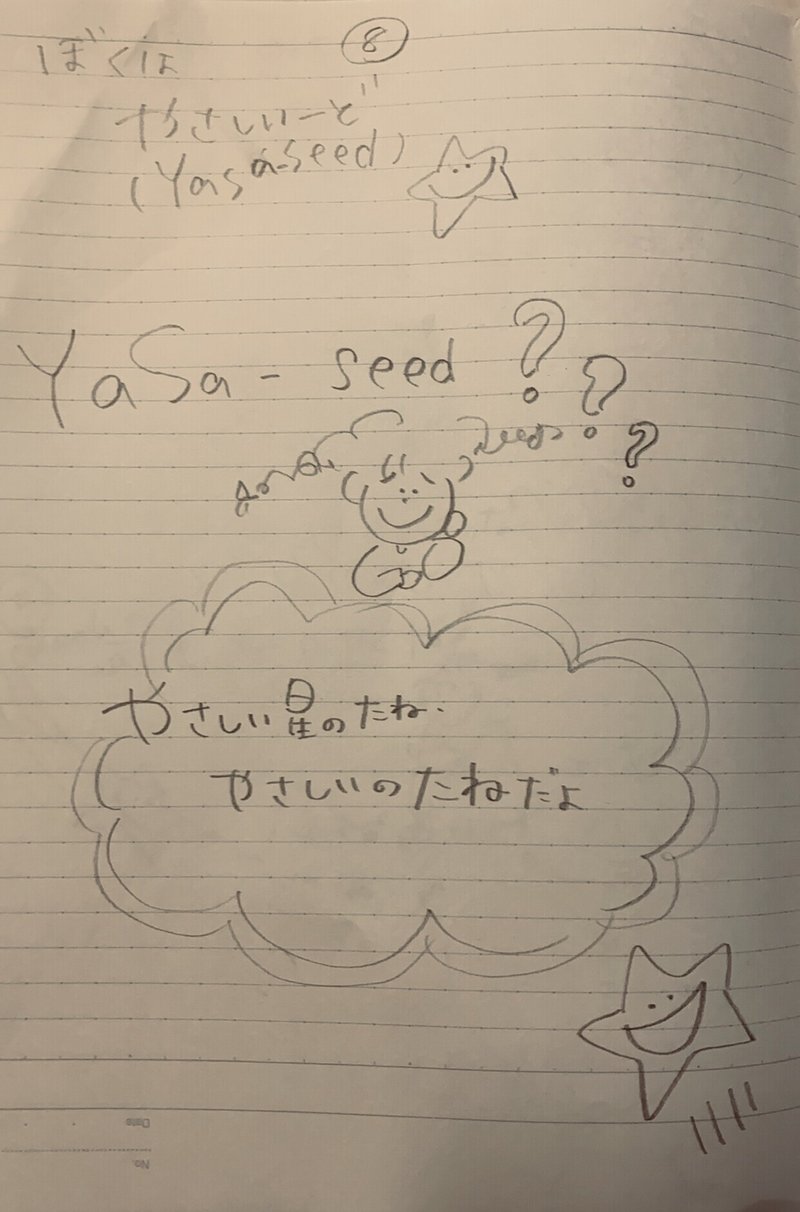 ⑧
ぼくは
やさしいーど
(Yasa-seed)
YaSa - seed ???
やさしい星のたね.
やさしいのたねだよ
Date
No.